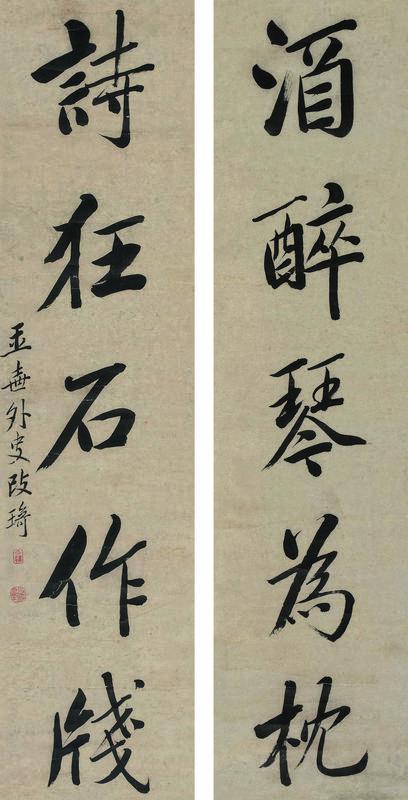 酒醉琴為枕
詩狂石作牋
玉壺外史改琦